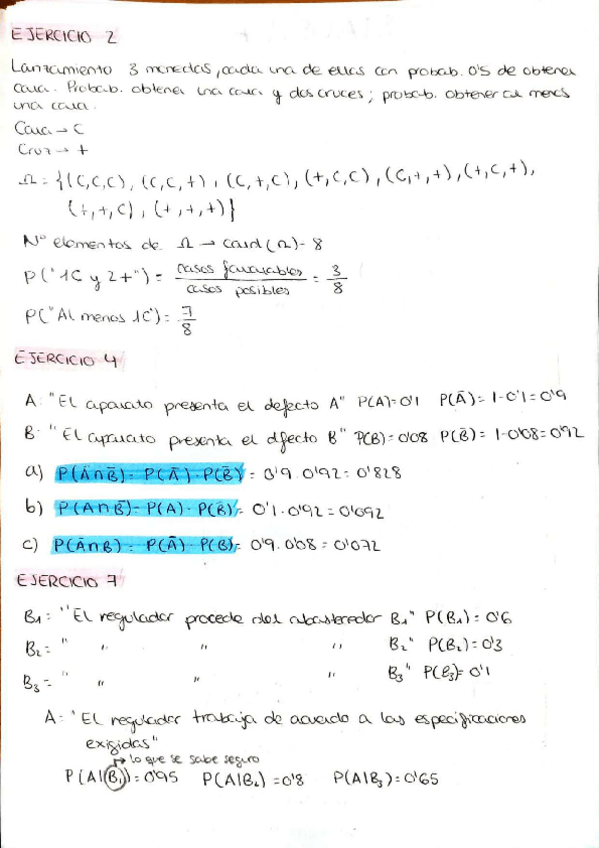 EJERCICIO 2
Lanzamiento 3 monedas, cada una de ellas con probab. 0'5 de obtener
cara. Probab. obtener una cara y dos cruces; probab. obtener al menos
una cara.
Cara → C
Cruz → +
Ω = {(C,C,C), (C,C,+), (C,+,C), (+,C,C), (C,+,+), (+,C,+),
(+,+,C), (+,+,+)}
Nº elementos de Ω → card(Ω) = 8
P("1C y 2+") = casos favorables / casos posibles = 3/8
P("Al menos 1C") = 7/8
EJERCICIO 4
A: "El aparato presenta el defecto A" P(A)=0'1 P(Ā)= 1-0'1=0'9
B: "El aparato presenta el dfecto B" P(B)=0'08 P(B̄)= 1-0'08=0'92
a) P(Ā∩B̄) = P(Ā) · P(B̄) = 0'9 · 0'92 = 0'828
b) P(A∩B̄) = P(A) · P(B̄) = 0'1 · 0'92 = 0'092
c) P(Ā∩B) = P(Ā) · P(B) = 0'9 · 0'08 = 0'072
EJERCICIO 7
B₁ = "El regulador procede del abastecedor B₁" P(B₁) = 0'6
B₂ = " " " " B₂" P(B₂) = 0'3
B₃ = " " " " B₃" P(B₃) = 0'1
A: "El regulador trabaja de acuerdo a las especificaciones
exigidas"
→ lo que se sabe seguro
P(A|B₁) = 0'95 P(A|B₂) = 0'8 P(A|B₃) = 0'65